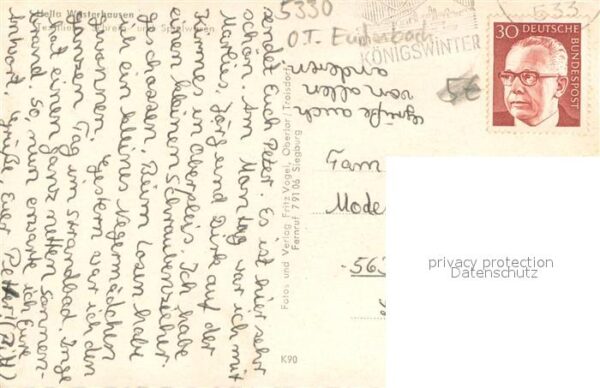 Hella Westerhausen
5330
OT. Eudenbach
533
KÖNIGSWINTER
30 DEUTSCHE
BUNDESPOST
5€
Grüße auch
von allen
anderen
sendet Euch Peter. Es ist hier sehr
schön. Am Montag war ich mit
Marlis, Jörg und Dirk auf der
Kirmes in Oberpleis. Ich habe
einen kleinen Schraubenzieher
geschossen. Beim Losen habe
ich ein kleines Negermädchen
gewonnen. Gestern war ich den
ganzen Tag im Strandbad. Inge
hat einen ganz netten Sonnen-
brand. So, nun erwarte ich Eure
Antwort. Grüße, Euer Peter! (Piet)
Fotos und Verlag Fritz Vogel, Oberlar/Troisdorf
Fernruf 79106 Siegburg
K90
Fam
Mode
-563
privacy protection
Datenschutz